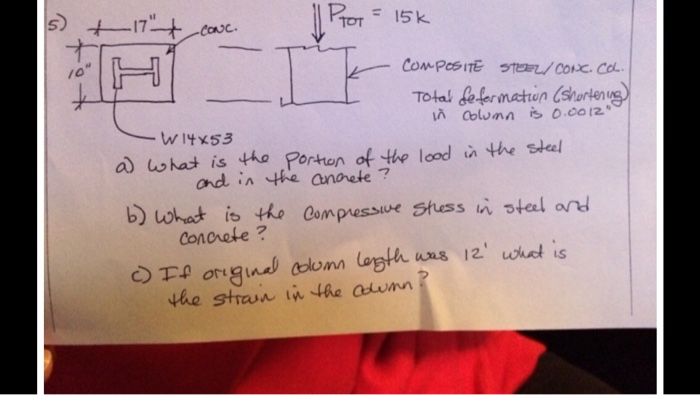 5) 17" CONC. PTOT = 15K
10"
COMPOSITE STEEL/CONC. COL.
Total deformation (shortening)
in column is 0.0012"
W14x53
a) What is the portion of the load in the steel
and in the concrete?
b) What is the compressive stress in steel and
concrete?
c) If original column length was 12' what is
the strain in the column?